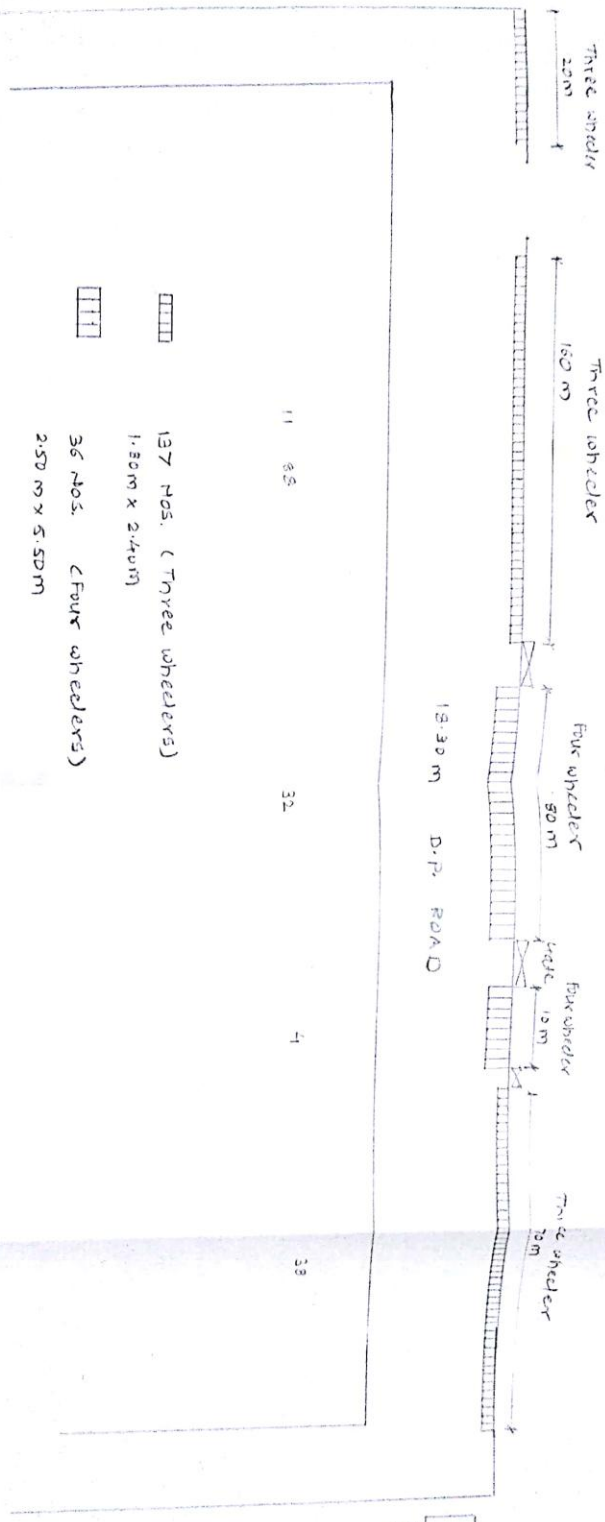 Three wheeler
20m
Three wheeler
160 m
Four wheeler
80 m
Gate
Four wheeler
10 m
Three wheeler
70m
18.30 m D.P. ROAD
11 88
32
4
38
137 NOS. (Three wheelers)
1.80m x 2.40m
36 NOS. (Four wheelers)
2.50 m x 5.50m